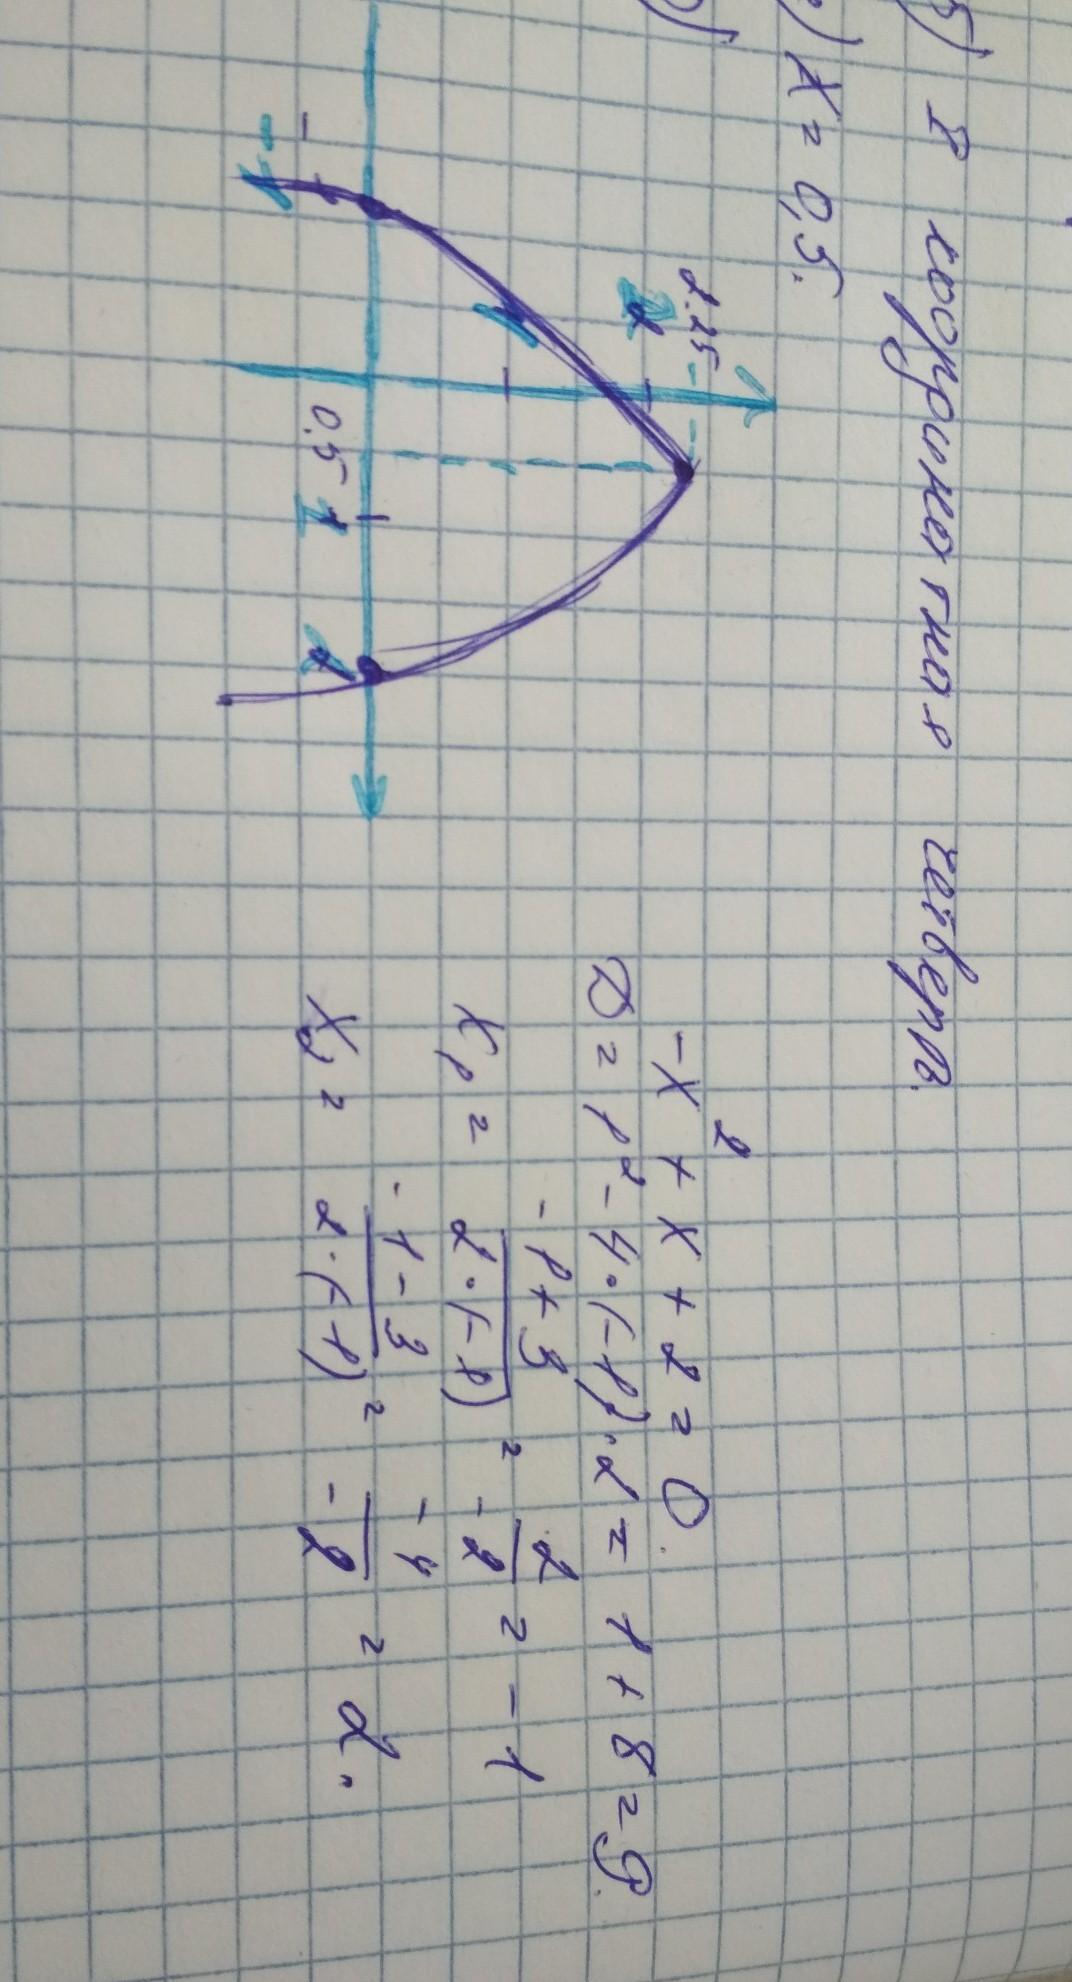 б) I координатная четверть.
в) x = 0,5.
2.25
2
0.5 1 2
-x² + x + 2 = 0.
D = 1² - 4·(-1)·2 = 1 + 8 = 9.
x₁ = \frac{-1+3}{2·(-1)} = \frac{2}{-2} = -1
x₂ = \frac{-1-3}{2·(-1)} = \frac{-4}{-2} = 2.